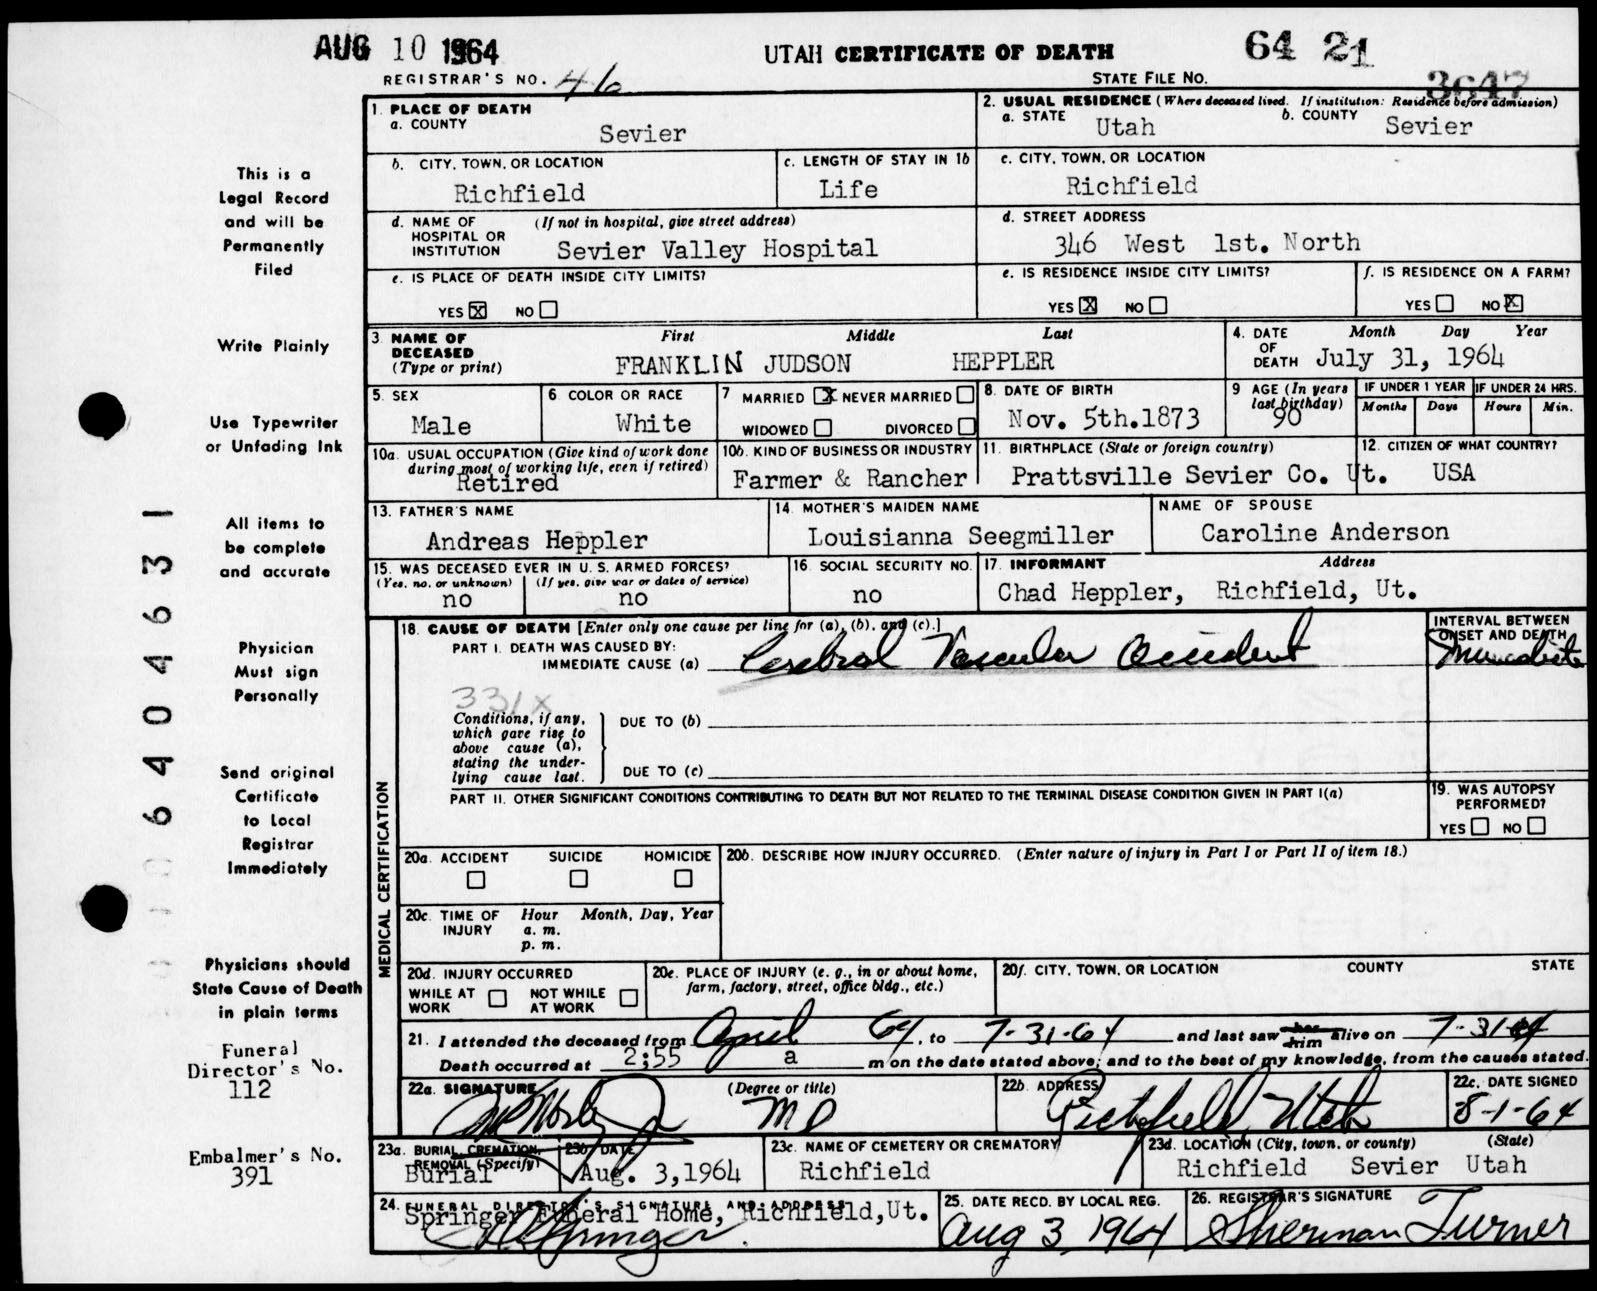 AUG 10 1964
UTAH CERTIFICATE OF DEATH
64 21
REGISTRAR'S NO. 46
STATE FILE NO. 3647
This is a
Legal Record
and will be
Permanently
Filed
Write Plainly
Use Typewriter
or Unfading Ink
All items to
be complete
and accurate
Physician
Must sign
Personally
Send original
Certificate
to Local
Registrar
Immediately
Physicians should
State Cause of Death
in plain terms
Funeral
Director's No.
112
Embalmer's No.
391
6404631
1. PLACE OF DEATH
a. COUNTY
Sevier
2. USUAL RESIDENCE (Where deceased lived. If institution: Residence before admission)
a. STATE Utah
b. COUNTY Sevier
b. CITY, TOWN, OR LOCATION
Richfield
c. LENGTH OF STAY IN 1b
Life
c. CITY, TOWN, OR LOCATION
Richfield
d. NAME OF HOSPITAL OR INSTITUTION (If not in hospital, give street address)
Sevier Valley Hospital
d. STREET ADDRESS
346 West 1st. North
e. IS PLACE OF DEATH INSIDE CITY LIMITS?
YES X NO
e. IS RESIDENCE INSIDE CITY LIMITS?
YES X NO
f. IS RESIDENCE ON A FARM?
YES NO X
3. NAME OF DECEASED (Type or print)
First Middle Last
FRANKLIN JUDSON HEPPLER
4. DATE OF DEATH Month Day Year
July 31, 1964
5. SEX
Male
6. COLOR OR RACE
White
7 MARRIED X NEVER MARRIED
WIDOWED DIVORCED
8. DATE OF BIRTH
Nov. 5th.1873
9 AGE (In years last birthday)
90
IF UNDER 1 YEAR
Months Days
IF UNDER 24 HRS.
Hours Min.
10a. USUAL OCCUPATION (Give kind of work done during most of working life, even if retired)
Retired
10b. KIND OF BUSINESS OR INDUSTRY
Farmer & Rancher
11. BIRTHPLACE (State or foreign country)
Prattsville Sevier Co. Ut.
12. CITIZEN OF WHAT COUNTRY?
USA
13. FATHER'S NAME
Andreas Heppler
14. MOTHER'S MAIDEN NAME
Louisianna Seegmiller
NAME OF SPOUSE
Caroline Anderson
15. WAS DECEASED EVER IN U.S. ARMED FORCES?
(Yes, no, or unknown) (If yes, give war or dates of service)
no no
16. SOCIAL SECURITY NO.
no
17. INFORMANT Address
Chad Heppler, Richfield, Ut.
MEDICAL CERTIFICATION
18. CAUSE OF DEATH [Enter only one cause per line for (a), (b), and (c).]
PART I. DEATH WAS CAUSED BY:
IMMEDIATE CAUSE (a) Cerebral Vascular Accident
INTERVAL BETWEEN ONSET AND DEATH
Immediate
331X
Conditions, if any,
which gave rise to
above cause (a),
stating the under-
lying cause last.
DUE TO (b)
DUE TO (c)
PART II. OTHER SIGNIFICANT CONDITIONS CONTRIBUTING TO DEATH BUT NOT RELATED TO THE TERMINAL DISEASE CONDITION GIVEN IN PART I(a)
19. WAS AUTOPSY PERFORMED?
YES NO
20a. ACCIDENT SUICIDE HOMICIDE
20b. DESCRIBE HOW INJURY OCCURRED. (Enter nature of injury in Part I or Part II of item 18.)
20c. TIME OF INJURY Hour Month, Day, Year
a. m.
p. m.
20d. INJURY OCCURRED
WHILE AT WORK NOT WHILE AT WORK
20e. PLACE OF INJURY (e. g., in or about home, farm, factory, street, office bldg., etc.)
20f. CITY, TOWN, OR LOCATION COUNTY STATE
21. I attended the deceased from April 64, to 7-31-64 and last saw her him alive on 7-31-64
Death occurred at 2:55 a m on the date stated above; and to the best of my knowledge, from the causes stated.
22a. SIGNATURE (Degree or title)
MD
22b. ADDRESS
Richfield Utah
22c. DATE SIGNED
8-1-64
23a. BURIAL, CREMATION, REMOVAL (Specify)
Burial
23b. DATE
Aug. 3,1964
23c. NAME OF CEMETERY OR CREMATORY
Richfield
23d. LOCATION (City, town, or county) (State)
Richfield Sevier Utah
24. FUNERAL DIRECTOR'S SIGNATURE AND ADDRESS
Springer Funeral Home, Richfield,Ut.
Springer
25. DATE RECD. BY LOCAL REG.
Aug 3, 1964
26. REGISTRAR'S SIGNATURE
Sherman Turner